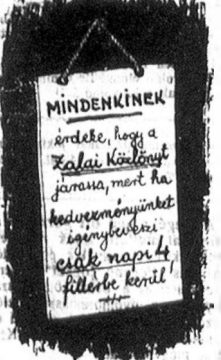 MINDENKINEK
érdeke, hogy a
Zalai Közlönyt
járassa, mert ha
kedvezményünket
igénybeveszi
csak napi 4
fillérbe kerül,